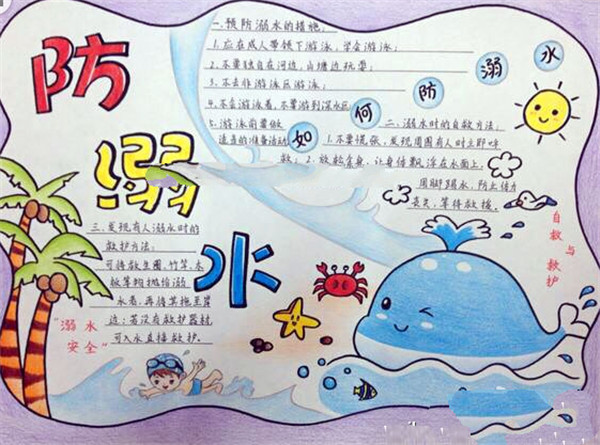 防
溺
水
如何防溺水
一.预防溺水的措施:
1.应在成人带领下游泳,学会游泳;
2.不要独自在河边、山塘边玩耍;
3.不去非游泳区游泳;
4.不会游泳者,不要游到深水区
5.游泳前要做
适当的准备活动
二.溺水时的自救方法:
1.不要慌张,发现周围有人时立即呼
救;2.放松全身,让身体飘浮在水面上,
用脚踢水,防止体力
丧失,等待救援。
三.发现有人溺水时的
救护方法:
可将救生圈、竹竿、木
板等物抛给溺
水者,再将其拖至岸
边;若没有救护器材,
可入水直接救护。
“溺水
安全”
自救与救护